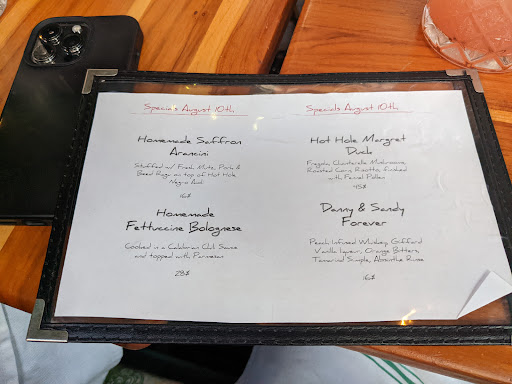 Specials August 10th
Homemade Saffron
Arancini
Stuffed w/ Fresh Mutz, Pork &
Beed Ragu on top of Hot Hole
Negra Aioli
16$
Homemade
Fettuccine Bolognese
Cooked in a Calabrian Chili Sauce
and topped with Parmesan
28$
Specials August 10th
Hot Hole Margret
Duck
Fregola, Chanterelle Mushrooms,
Roasted Corn Risotto, finished
with Fennel Pollen
45$
Danny & Sandy
Forever
Peach Infused Whiskey, Giffard
Vanilla Liqueur, Orange Bitters,
Tamarind Simple, Absinthe Rinse
16$